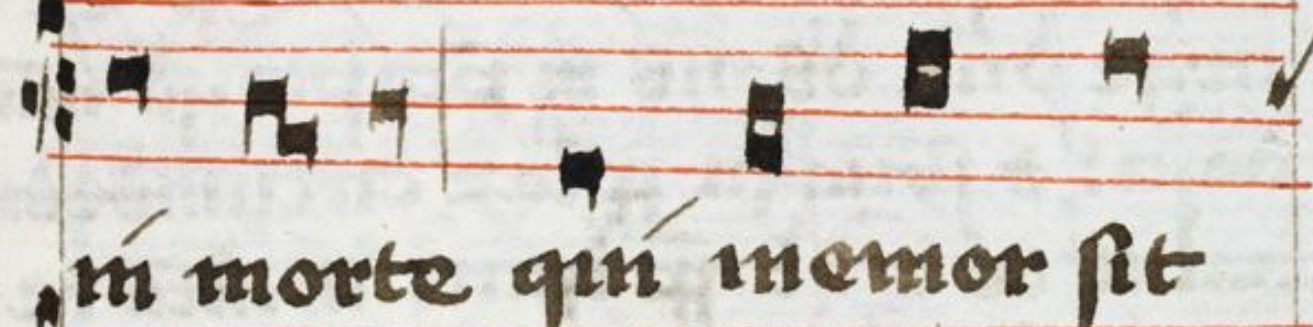 in morte qui memor sit